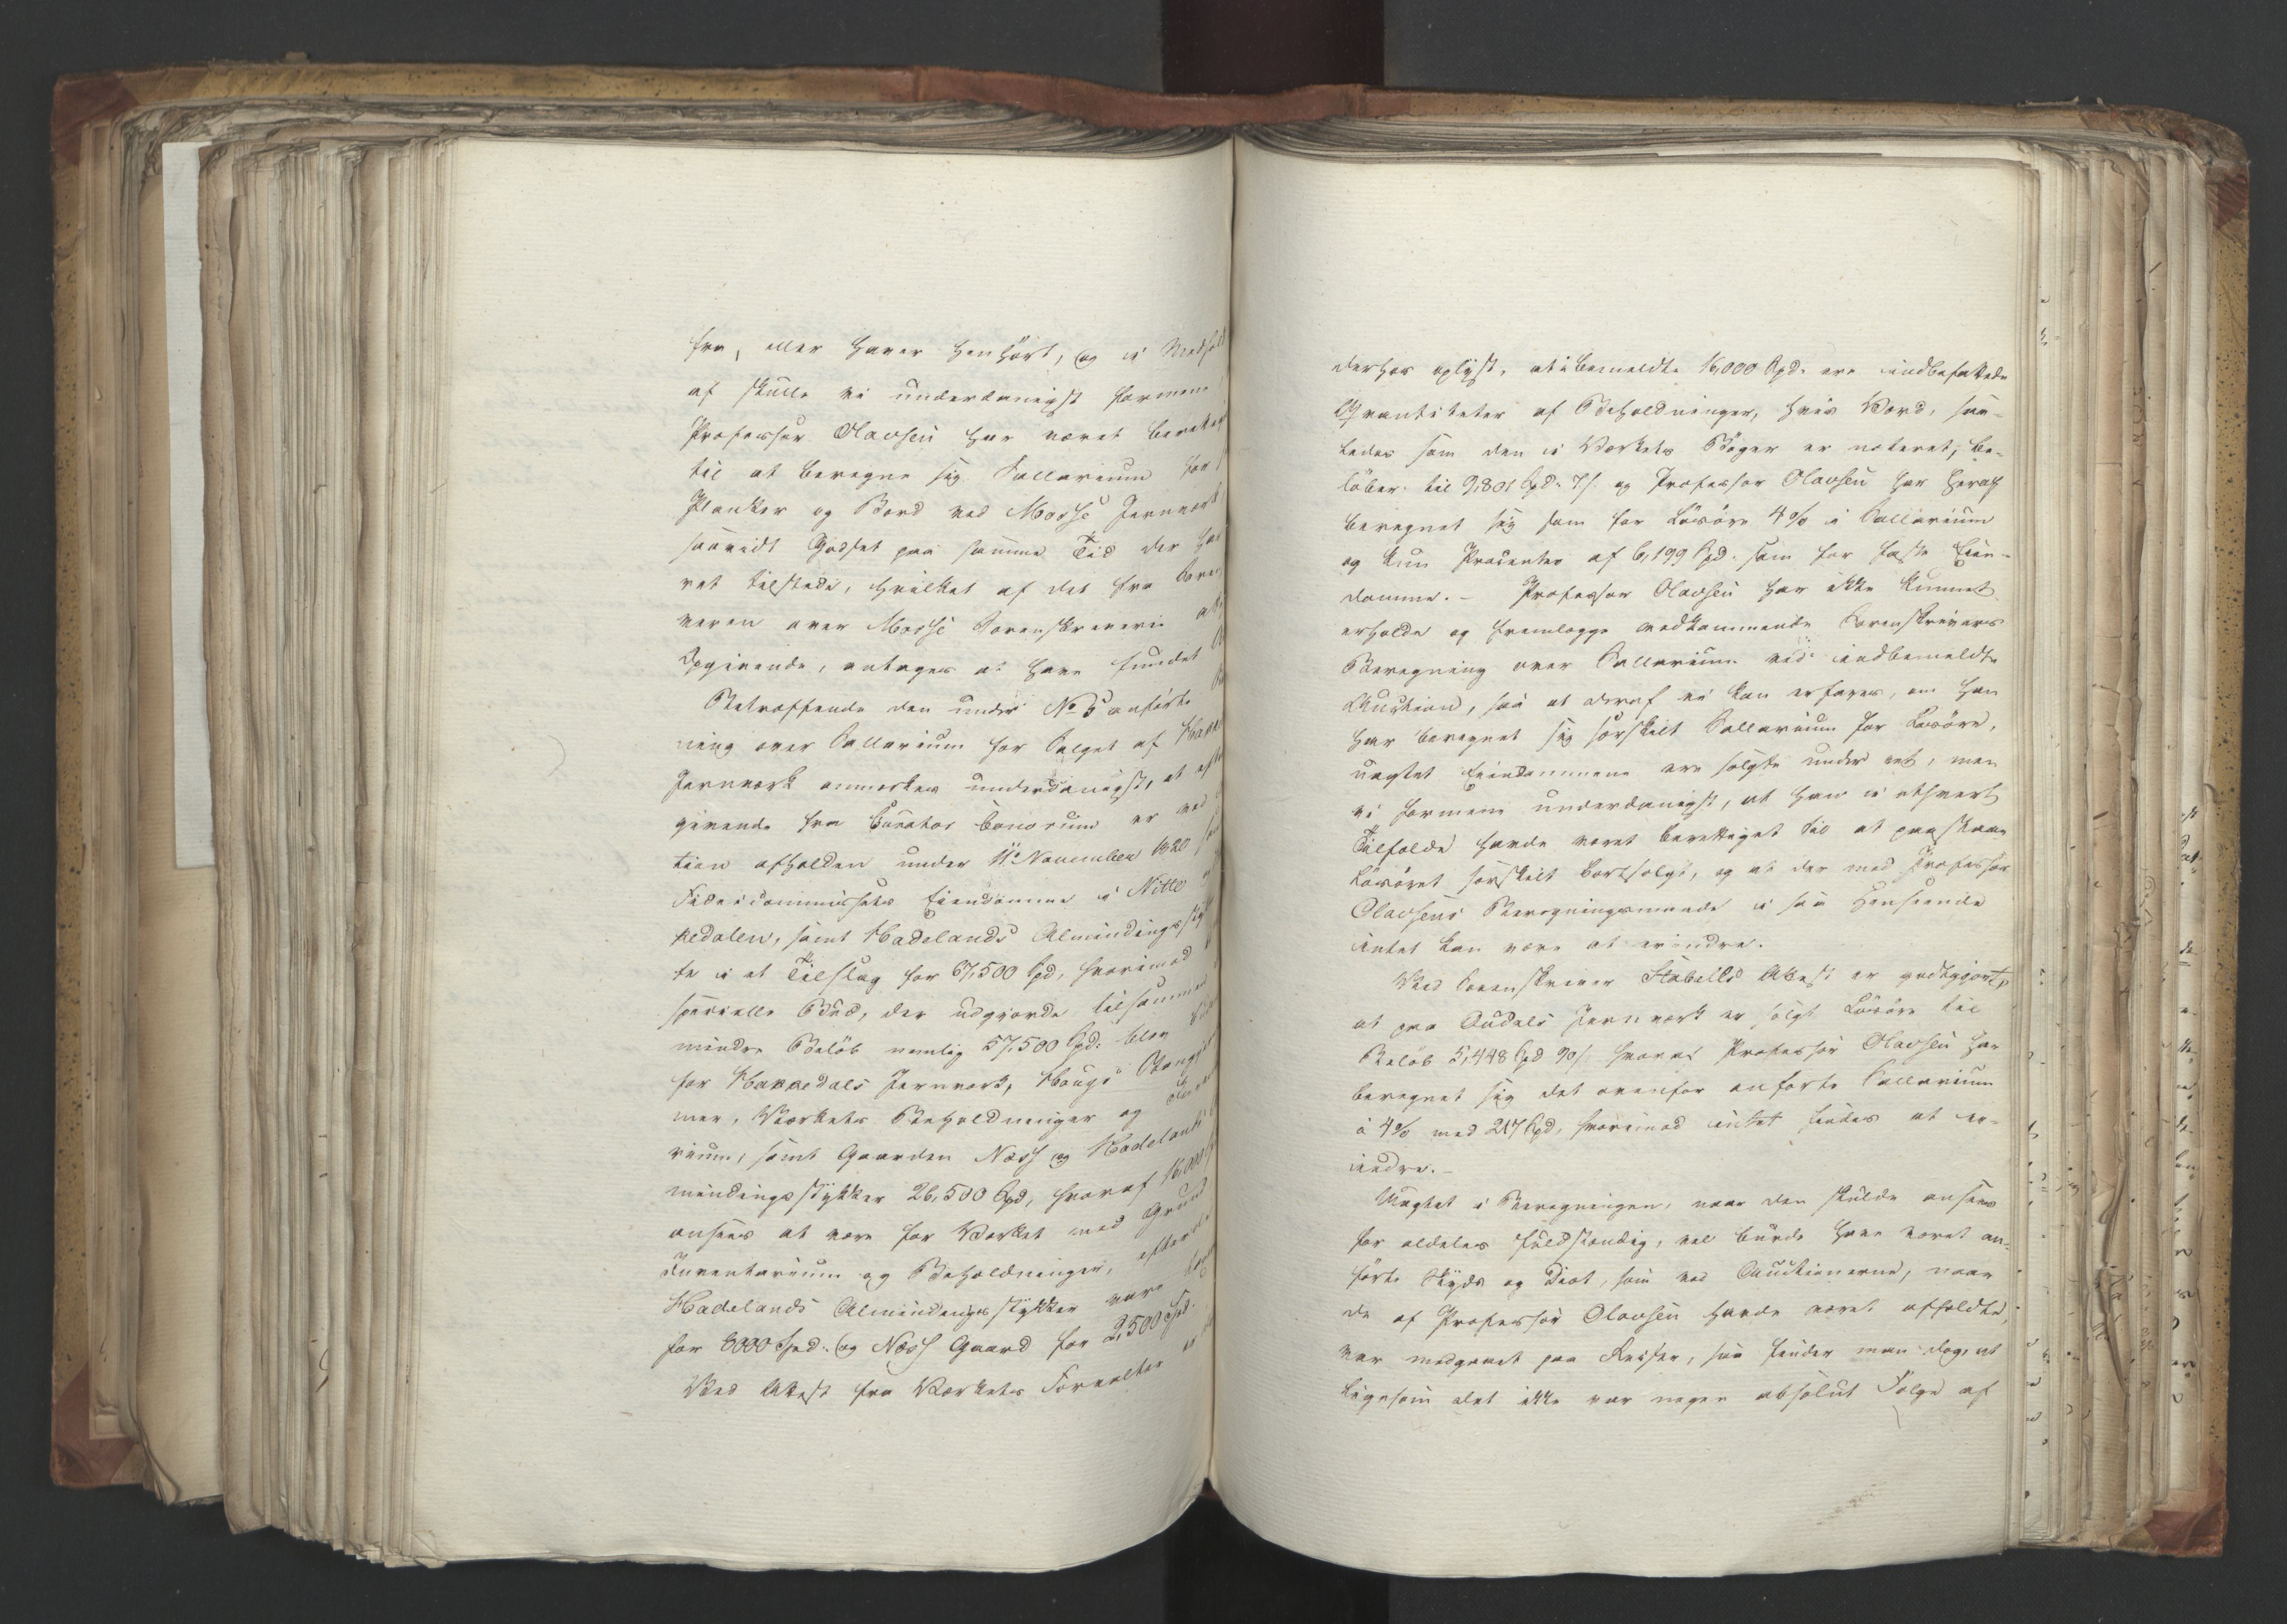 fra, eller haver henhört, og i Medhold
af skulle vi underdanigst formene
Professor Olavsen har været beretteg
til at beregne sig Sallarium for
Planker og Bord ved Mosse Jernværk
saavidt Godset paa samme Tid der ha
ret tilstede, hvilket af det fra Soren
veren over Mosse Sorenskriverie
Opgivende, antages at have fundet
Betræffende den under No 5 anförte
ning over Sallarium for Salget af Hakke
Jernværk anmærkes underdanigst, at efte
givende fra Curator bonorum er ved
tion afholden under 11te November 1820
Fideicommissets Eiendomme i Nitte
kedalen, samt Hadelands Almindingsstyk
te i et Tilslag for 37,500 Spd, hvorimod
specielle Bud, der udgjorde tilsammen
mindre Belöb nemlig 57,500 Spd: blev
for Hakkedals Jernværk, Hougs
mer, Værkets Beholdninger og
rium, samt Gaarden Næss og Hadelands
mindingsstykker 26,500 Spd, hvoraf 16,000
ansees at være for Værket med Grund
Inventarium og Beholdninger, efterat
Hadelands Almindingsstykker vare
for 8000 Spd. og Næss Gaard for 2,500 Spd.
Ved Attest fra Værkets Forvalter er
derhos oplyst, at i bemeldte 16,000 Spd. ere indbefattede
Qvantiteter af Beholdninger, hvis Værd, saa-
ledes som den i Værkets Böger er noteret, be-
löber til 9,801 Spd. 7 s. og Professor Olavsen har heraf
beregnet sig som for Lösöre 4 % i Sallarium
og kun Procenter af 6,199 Spd. som for faste Eien-
domme. – Professor Olavsen har ikke kunnet
erholde og fremlægge vedkommende Sorenskrivers
Beregning over Sallarium ved indbemeldte
Auction, saa at deraf ei kan erfares, om han
har beregnet sig særskilt Sallarium for Lösöre,
uagtet Eiendommene ere solgte under eet, men
vi formene underdanigst, at han i ethvert
Tilfælde havde været berettiget til at paastaae
Lösöret særskilt bortsolgt, og at der mod Professor
Olavsens Beregningsmaade i saa Henseende
intet kan være at erindre.
Ved Sorenskriver Stabells Attest er godtgjort,
at paa Oudals Jernværk er solgt Lösöre til
Belöb 5,448 Spd 90 s. hvoraf Professor Olavsen har
beregnet sig det ovenfor anförte Sallarium
á 4 % med 217 Spd, hvorimod intet findes at er-
indre. –
Uagtet i Beregningen, naar den skulde ansees
for aldeles fuldstændig, vel burde have været an-
förte Skyds og Diæt, som ved Auctionerne, naar
de af Professor Olavsen havde været afholdte,
var medgaaet paa Reiser, saa finder man dog, at
ligesom det ikke var nogen absolut Fölge af